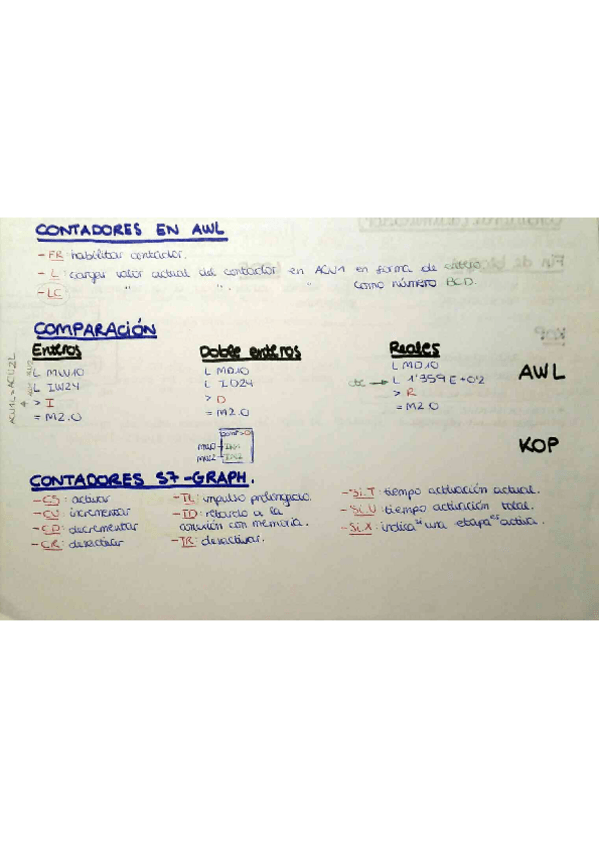 CONTADORES EN AWL
- FR: habilitar contador.
- L: cargar valor actual del contador en ACU1 en forma de entero
- LC " " " " como número BCD.
COMPARACIÓN
Enteros
L MW10
L IW24
> I
= M2.0
Doble enteros
L MD10
L ID24
> D
= M2.0
Reales
L MD10
L 1'359E+02
> R
= M2.0
AWL
KOP
CONTADORES S7-GRAPH.
- CS: activar
- CU: incrementar
- CD: decrementar
- CR: desactivar
- TL: impulso prolongado.
- TD: retardo a la
conexión con memoria.
- TR: desactivar.
- Si.T: tiempo activación actual.
- Si.U: tiempo activación total.
- Si.X: indica si una etapa es activa.